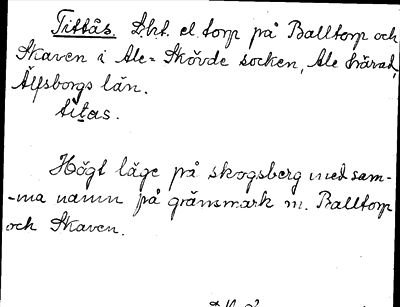 Tittås. Lht. el. torp på Balltorp och
Skaven i Ale-Skövde socken, Ale härad,
Älfsborgs län.
titas.
Högt läge på skogsberg med sam-
-ma namn på gränsmark m. Balltorp
och Skaven.